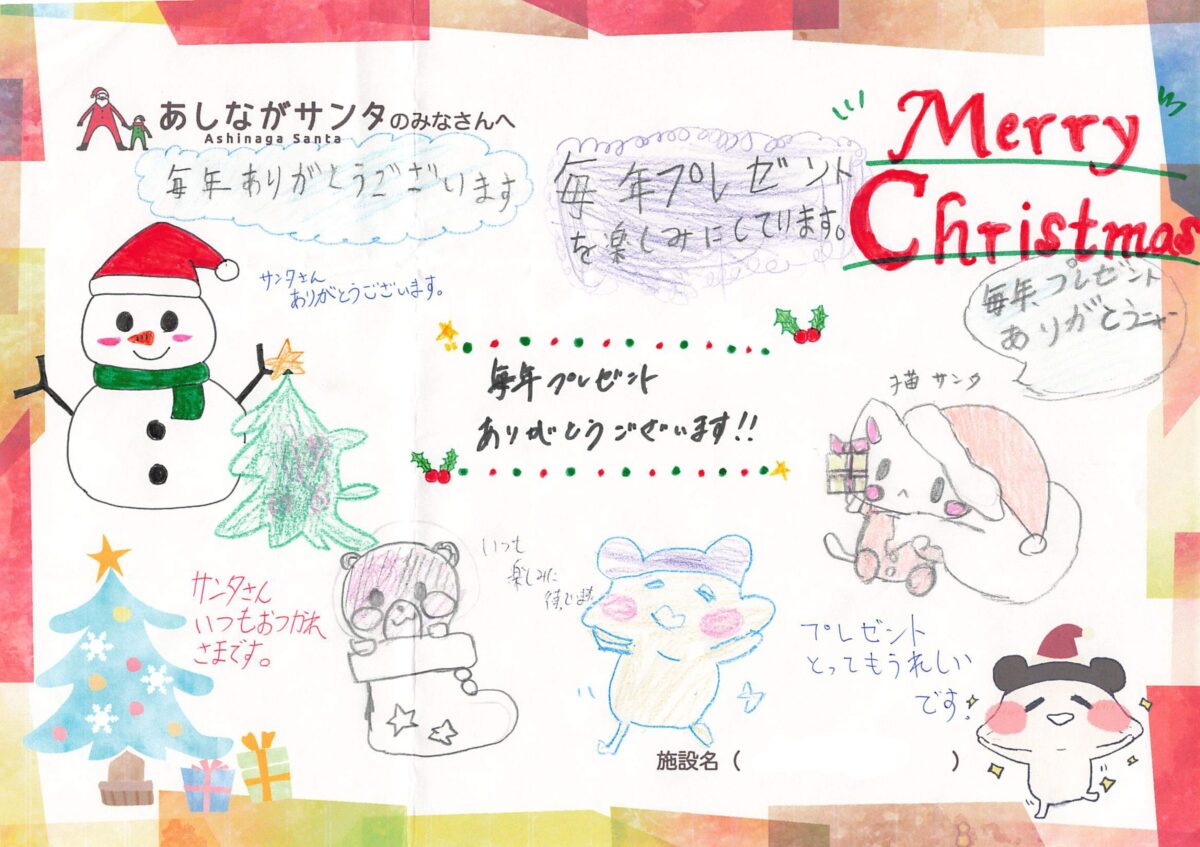 あしながサンタのみなさんへ
Ashinaga Santa
Merry
Christmas
毎年ありがとうございます
毎年プレゼント
を楽しみにしています。
サンタさん
ありがとうございます。
毎年、プレゼント
ありがとうニャー
毎年プレゼント
ありがとうございます!!
猫サンタ
サンタさん
いつもおつかれ
さまです。
いつも
楽しみに
待ってます
プレゼント
とってもうれしい
です!
施設名 ( )